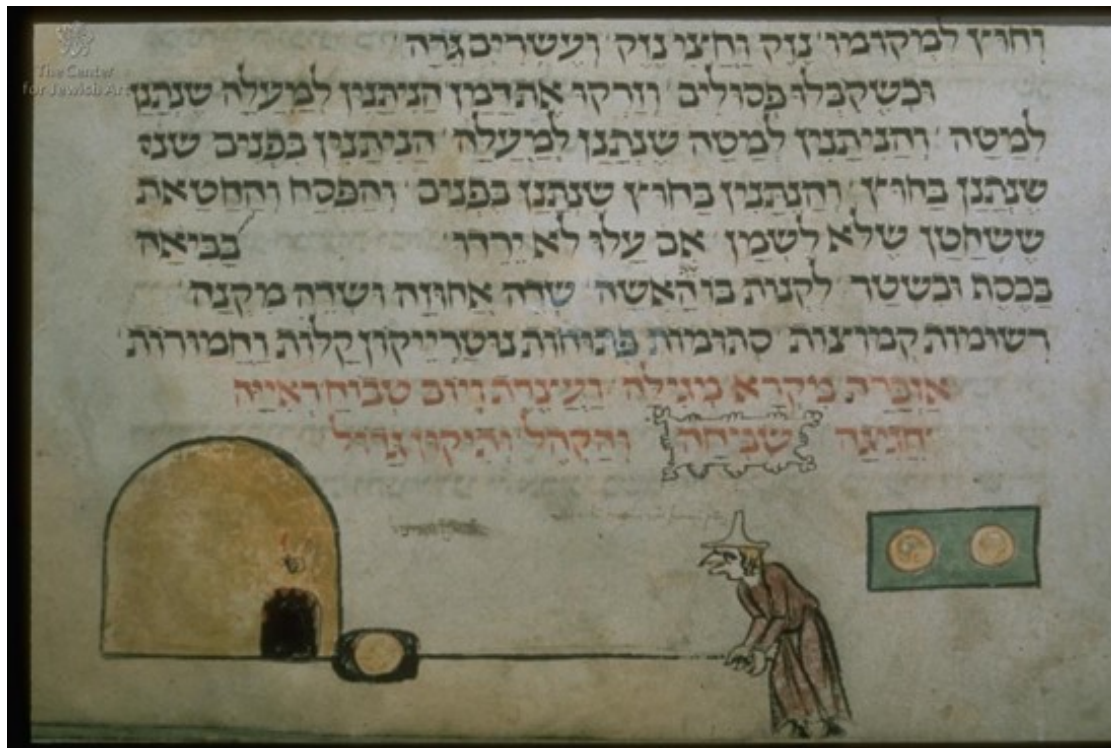 The Center
for Jewish Art
וְחוּץ לִמְקוֹמוֹ נֶזֶק וַחֲצִי נֶזֶק וְעֶשְׂרִים גֵּרָה
וּכְשֶׁקִּבְּלוּ פְסוּלִים וְזָרְקוּ אֶת דָּמָן הַנִּיתָּנִין לְמַעְלָה שֶׁנְּתָנָן
לְמַטָּה וְהַנִּיתָּנִין לְמַטָּה שֶׁנְּתָנָן לְמַעְלָה הַנִּיתָּנִין בִּפְנִים שנו
שֶׁנְּתָנָן בַּחוּץ וְהַנִּתָּנִין בַּחוּץ שֶׁנְּתָנָן בִּפְנִים וְהַפֶּסַח וְהַחַטָּאת
שֶׁשְּׁחָטָן שֶׁלֹּא לִשְׁמָן אִם עָלוּ לֹא יֵרְדוּ בְּבִיאָה
בְּכֶסֶף וּבִשְׁטָר לִקְנוֹת בּוֹ הָאִשָּׁה שְׂדֵה אֲחוּזָה וּשְׂדֵה מִקְנָה
רְשׁוּמוֹת קְמוּצוֹת סְתוּמוֹת פְּתוּחוֹת נוֹטָרֵיקוֹן קַלּוֹת וַחֲמוּרוֹת
מִקְרָא מְגִילָּה וַעֲצֶרֶת וְיוֹם טְבוֹחַ רְאִיָּיה
חֲגִיגָה שִׂמְחָה וְהַקְהֵל וְתִיקּוּן גָּדוֹל